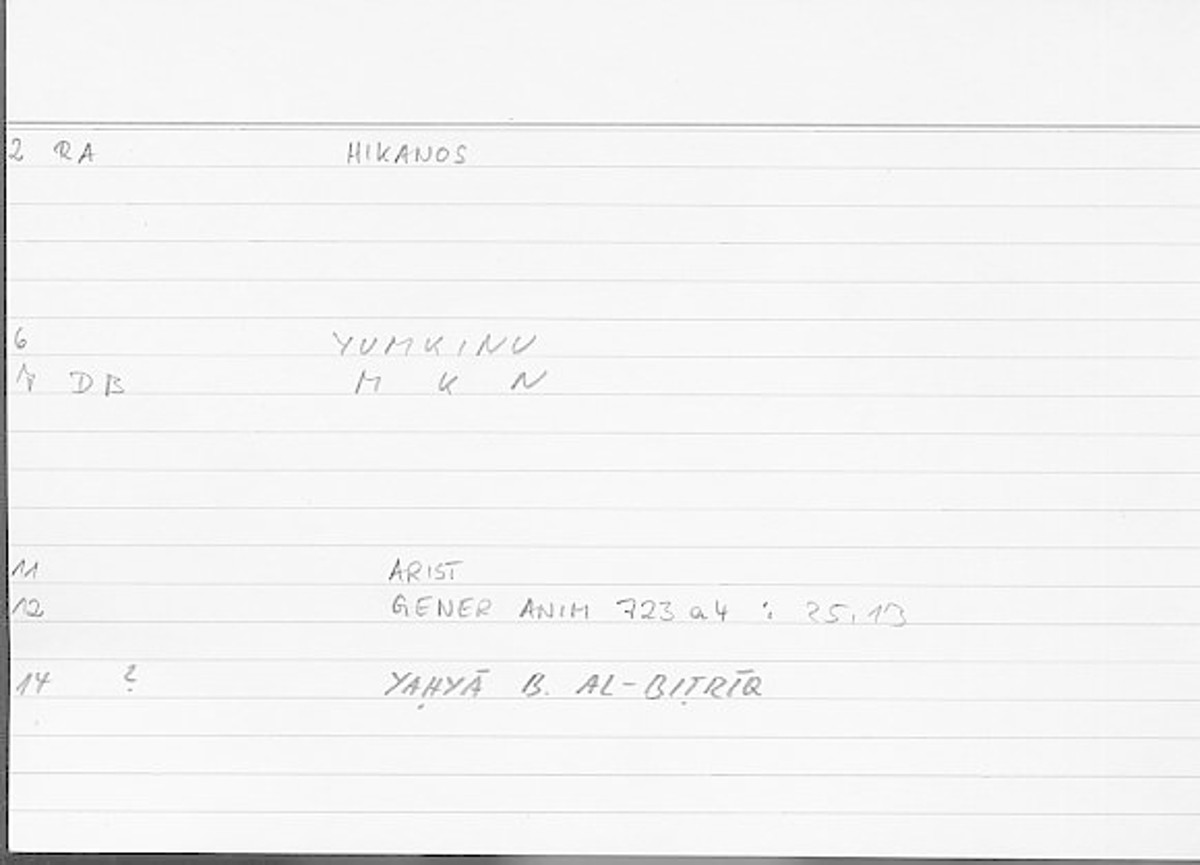 2 RA HIKANOS
6 YUMKINU
7 DB M K N
11 ARIST
12 GENER ANIM 723 a 4 : 25,13
14 ? YAḤYĀ B. AL-BIṬRĪQ